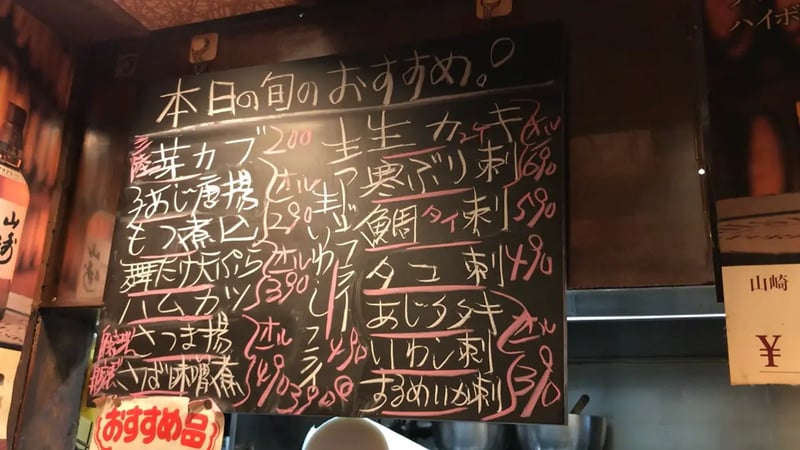 本日の旬のおすすめ。
芽カブ
200
子あじ唐揚
オル
290
もつ煮込
舞たけ天ぷら
オル
390
ハムカツ
さつま揚
オル
490
さば味噌煮
生アジフライ
490
生いわしフライ
390
生カキ
オル
690
寒ぶり刺
鯛タイ刺
590
タコ刺
490
あじタタキ
オル
390
いわし刺
するめいか刺
おすすめ品
山崎
¥
山崎
ハイボ